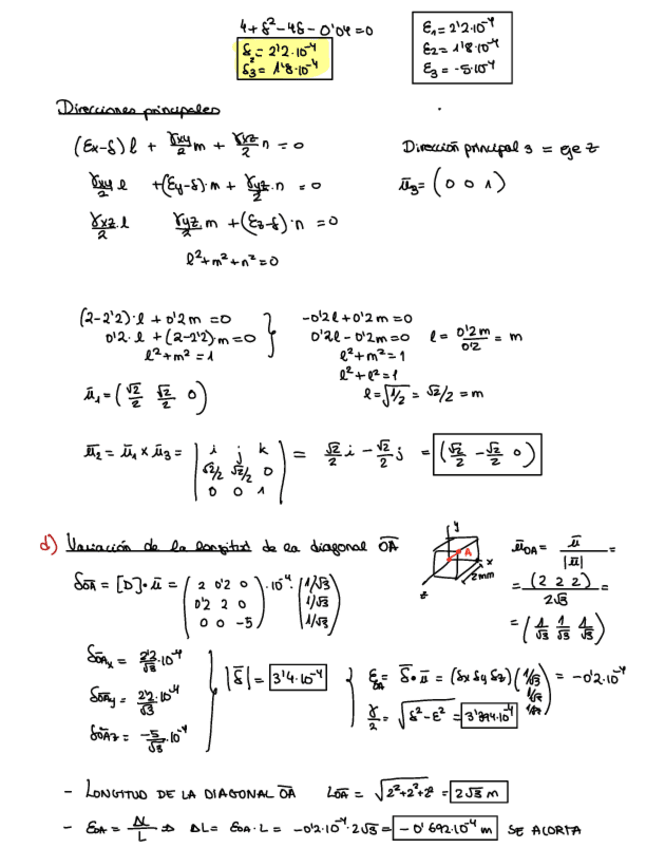 4+δ²-4δ-0'04=0
δ₂=2'2·10⁻⁴
δ₃=1'8·10⁻⁴
ε₁=2'2·10⁻⁴
ε₂=1'8·10⁻⁴
ε₃=-5·10⁻⁴
Direcciones principales
(εx-δ)l + γxy/2 m + γxz/2 n = 0
Dirección principal 3 = eje z
γxy/2 l +(εy-δ)·m + γyz/2·n = 0
ū₃=(0 0 1)
γxz/2·l γyz/2 m +(εz-δ)·n =0
l²+m²+n²=0
(2-2'2)·l + 0'2m =0
0'2·l +(2-2'2)·m =0
l²+m²=1
-0'2l+0'2m=0
0'2l-0'2m=0 l=0'2m/0'2 = m
l²+m²=1
l²+l²=1
l=√1/2 = √2/2 = m
ū₁=(√2/2 √2/2 0)
ū₂ = ū₁ x ū₃ = | i j k | = √2/2 i - √2/2 j = (√2/2 -√2/2 0)
√2/2 √2/2 0
0 0 1
d) Variación de la longitud de la diagonal OA
y
A
x
z
2mm
ūOA = ū/|ū| =
= (2 2 2)/2√3 =
= (1/√3 1/√3 1/√3)
δOA = [D]·ū = (2 0'2 0)·10⁻⁴·(1/√3)
0'2 2 0 1/√3
0 0 -5 1/√3
δOAx = 2'2/√3·10⁻⁴
δOAy = 2'2/√3·10⁻⁴
δOAz = -5/√3·10⁻⁴
|δ| = 3'4·10⁻⁴
εOA = δ·ū = (δx δy δz)(1/√3 1/√3 1/√3) = -0'2·10⁻⁴
γ/2 = √δ²-ε² = 3'394·10⁻⁴
- LONGITUD DE LA DIAGONAL OA LOA = √2²+2²+2² = 2√3 m
- εOA = ΔL/L ⇒ ΔL = εOA·L = -0'2·10⁻⁴·2√3 = -0'692·10⁻⁴ m SE ACORTA